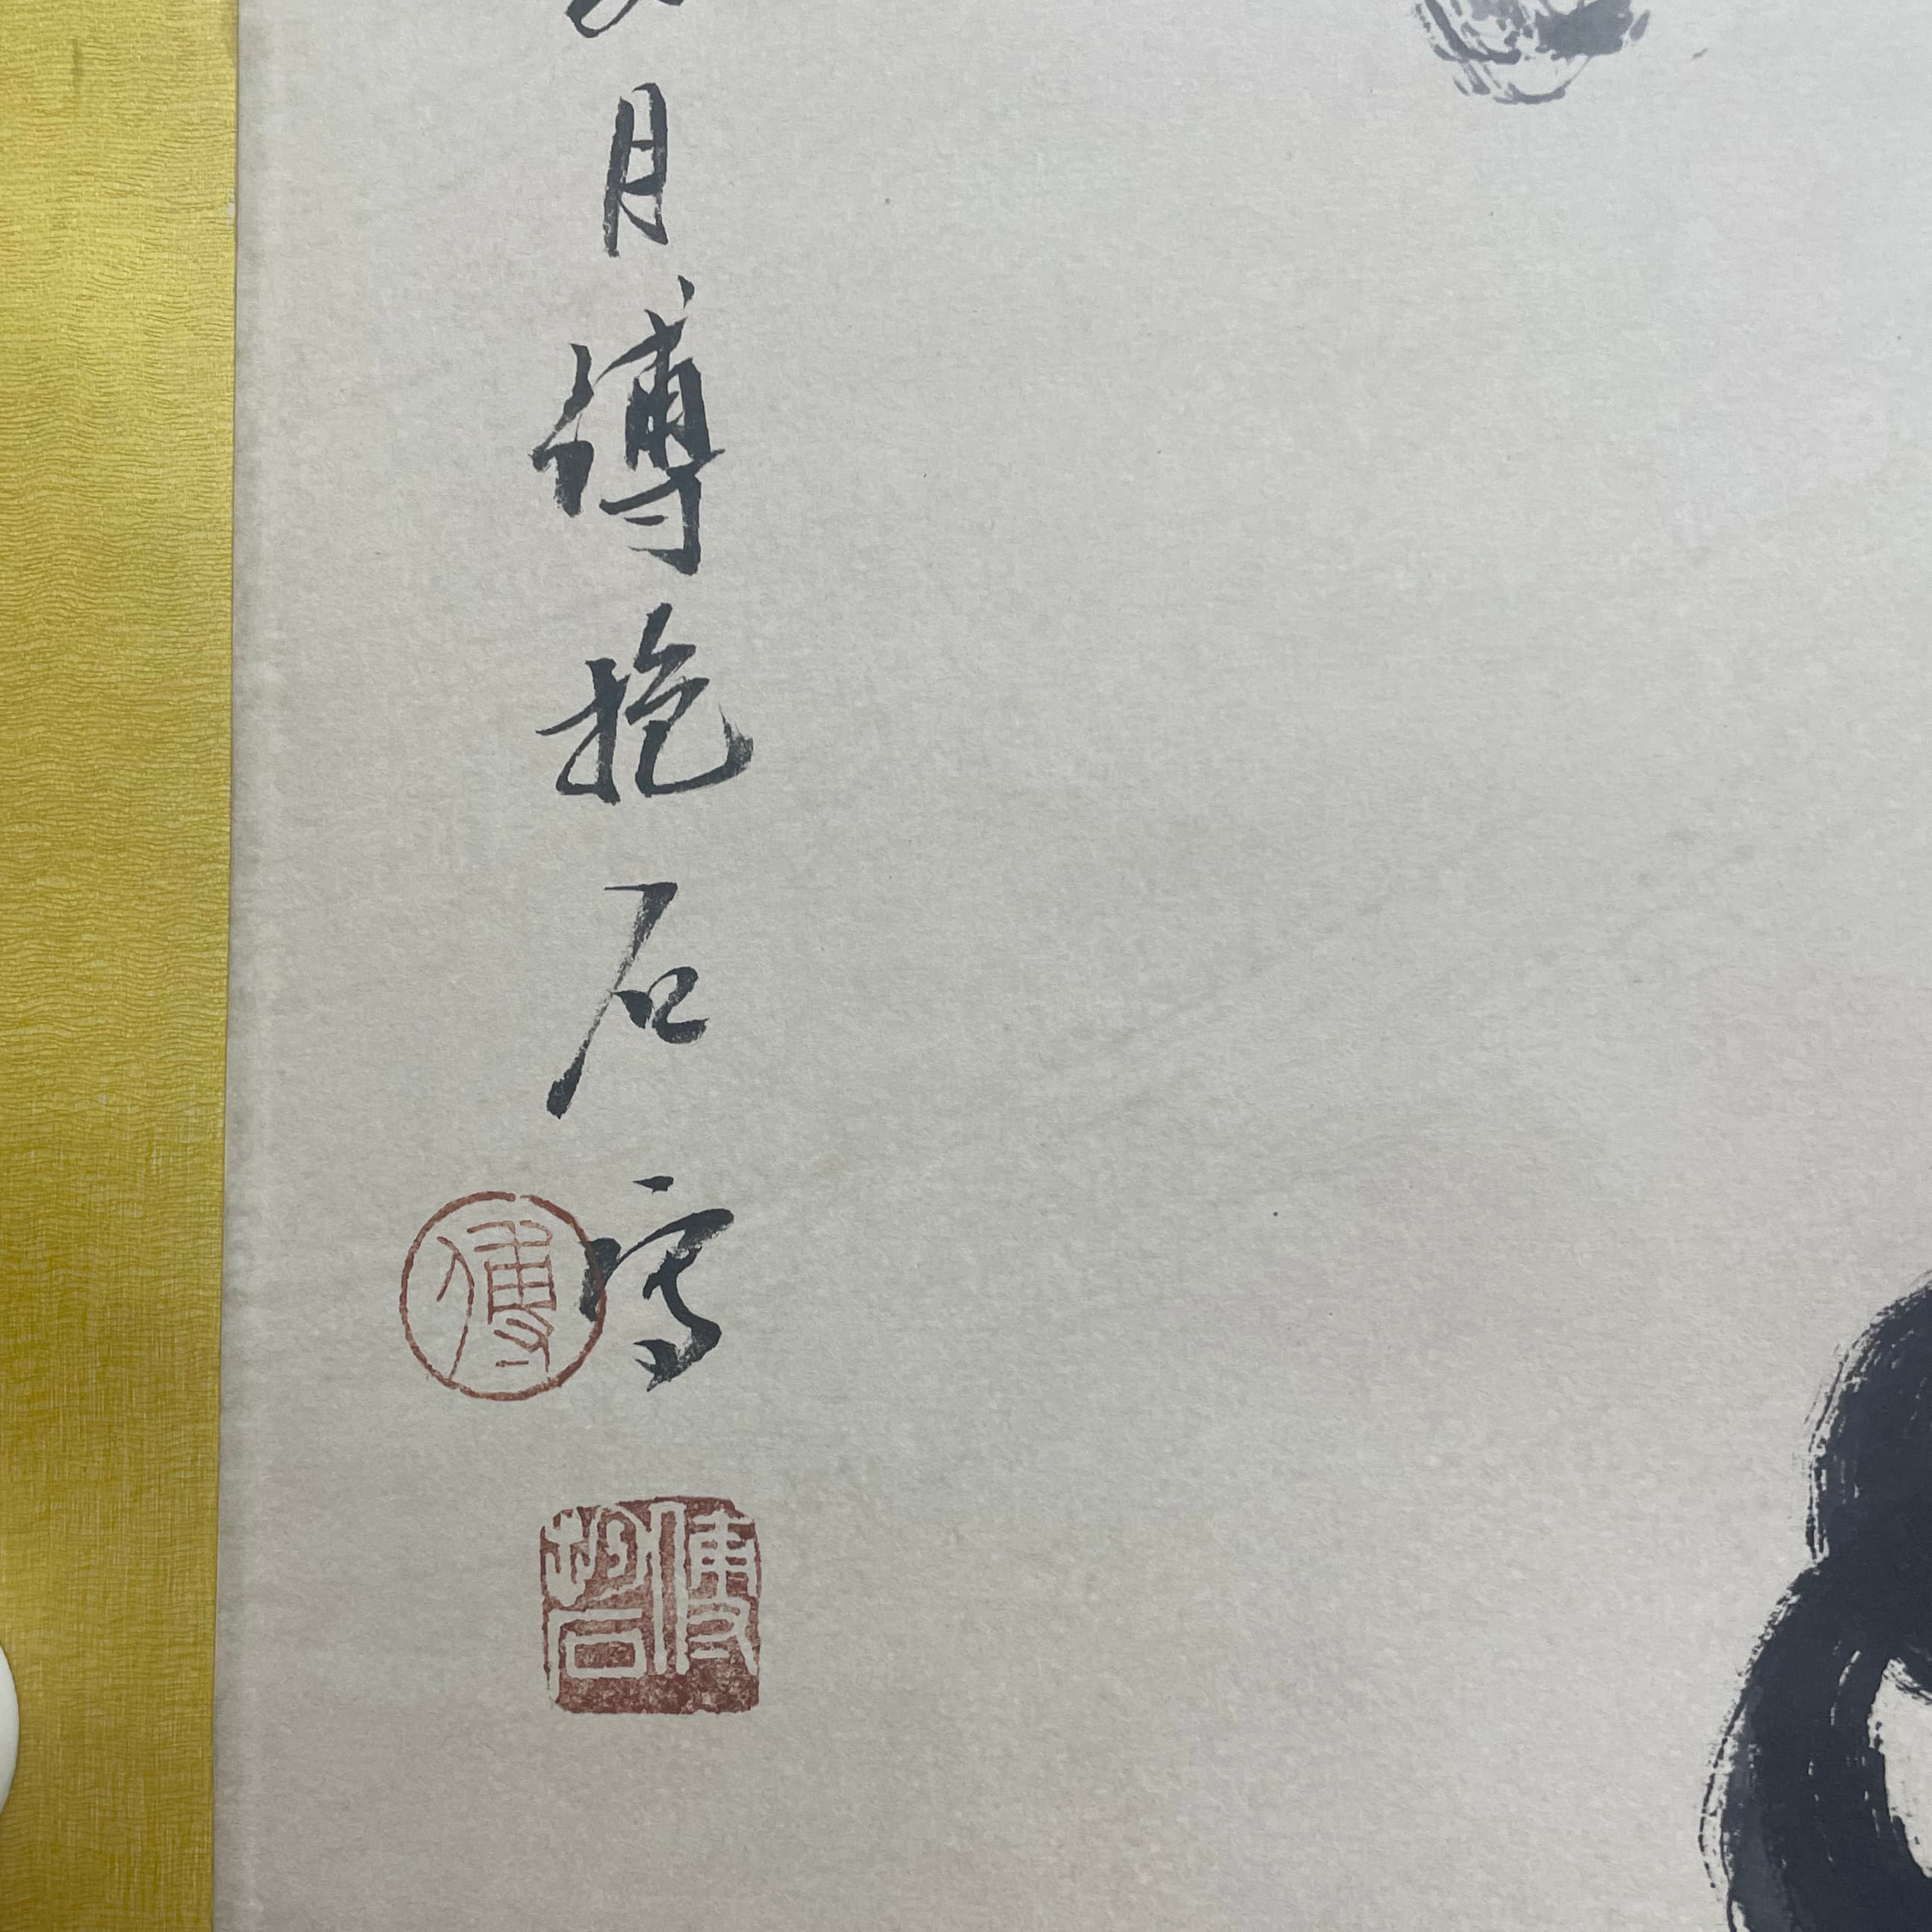 月傅抱石寫
傅
傅抱石